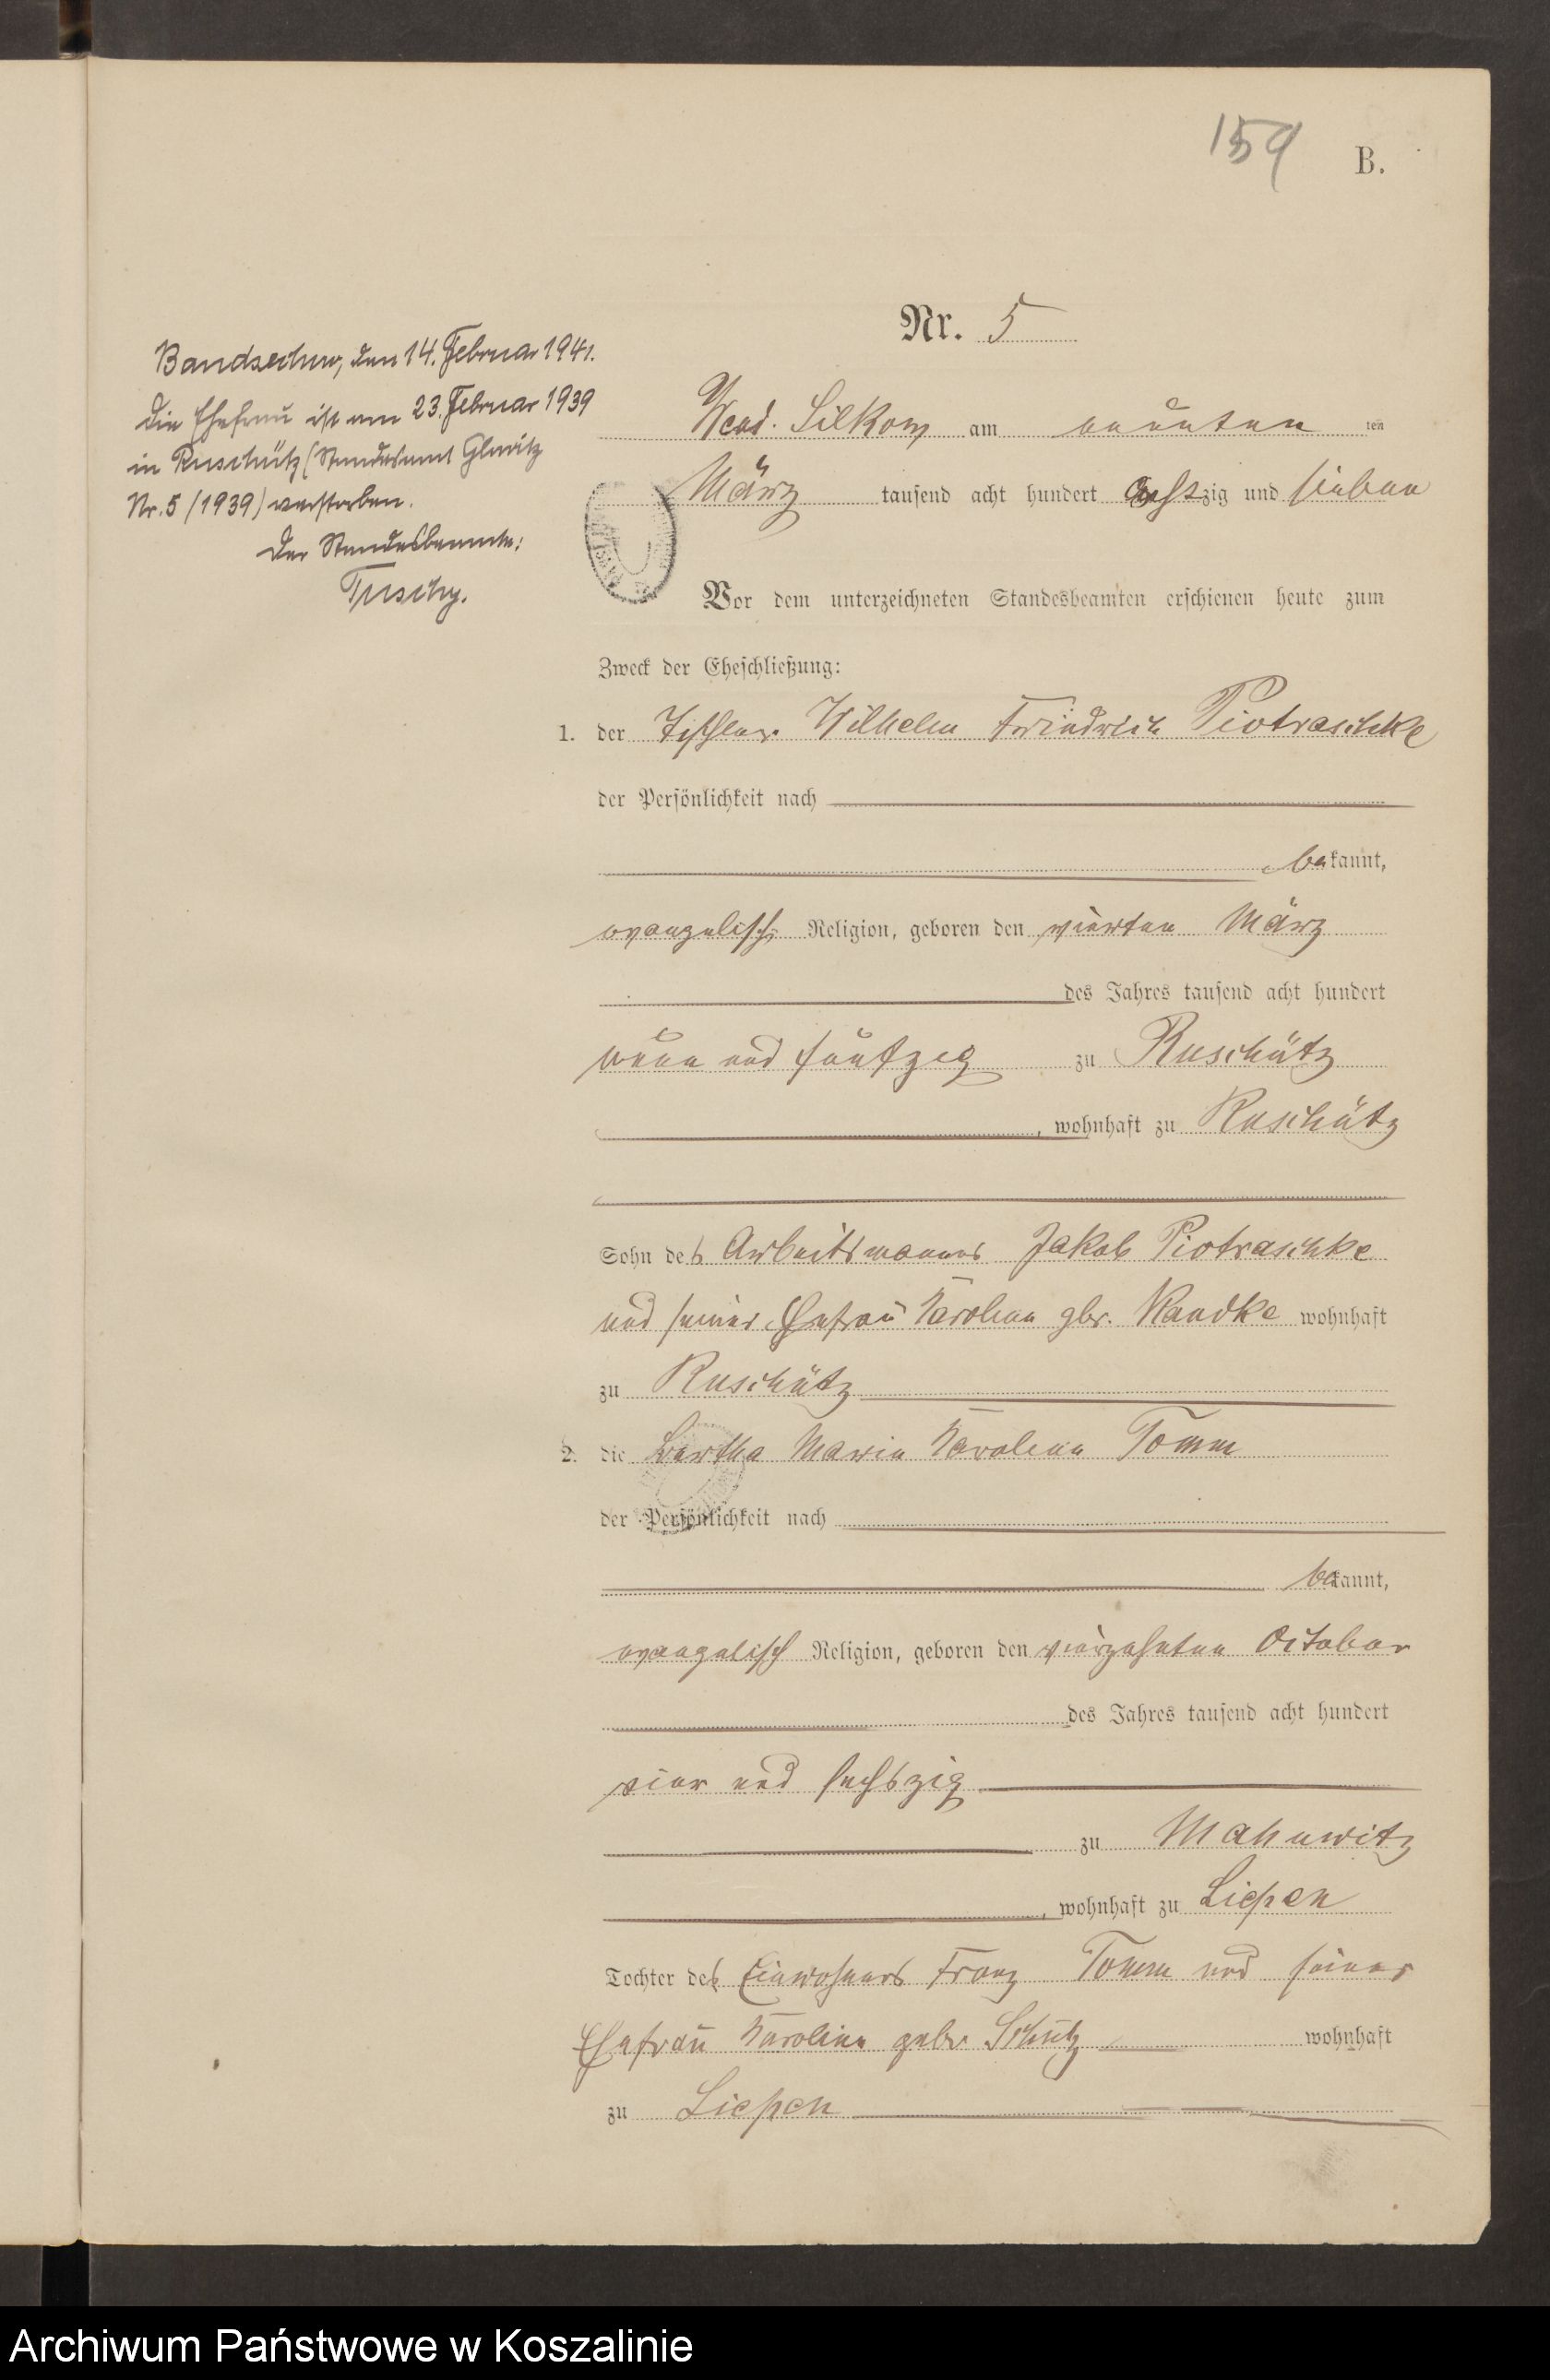 159
B.
Nr. 5
Bandsechow, den 14. Februar 1941.
Die Ehefrau ist am 23. Februar 1939
in Ruschütz (Standesamt Glowitz
Nr. 5/1939) verstorben.
Der Standesbeamte:
Tuschy.
Wend. Silkow am neunten ten
März tausend acht hundert achtzig und sieben
Vor dem unterzeichneten Standesbeamten erschienen heute zum
Zweck der Eheschließung:
1. der Tischler Wilhelm Friedrich Piotraschke
der Persönlichkeit nach
bekannt,
evangelisch Religion, geboren den vierten März
des Jahres tausend acht hundert
neun und fünfzig zu Ruschütz
, wohnhaft zu Ruschütz
Sohn des Arbeitsmannes Jakob Piotraschke
und seiner Ehefrau Karoline gbr. wohnhaft
zu Ruschütz
2. die Bertha Marie Karoline Tomm
der Persönlichkeit nach
bekannt,
evangelisch Religion, geboren den vierzehnten October
des Jahres tausend acht hundert
vier und sechszig
zu Mahnwitz
, wohnhaft zu Liepen
Tochter des Einwohners Franz Tomm und seiner
Ehefrau Karoline gebr Schulz wohnhaft
zu Liepen
Archiwum Państwowe w Koszalinie